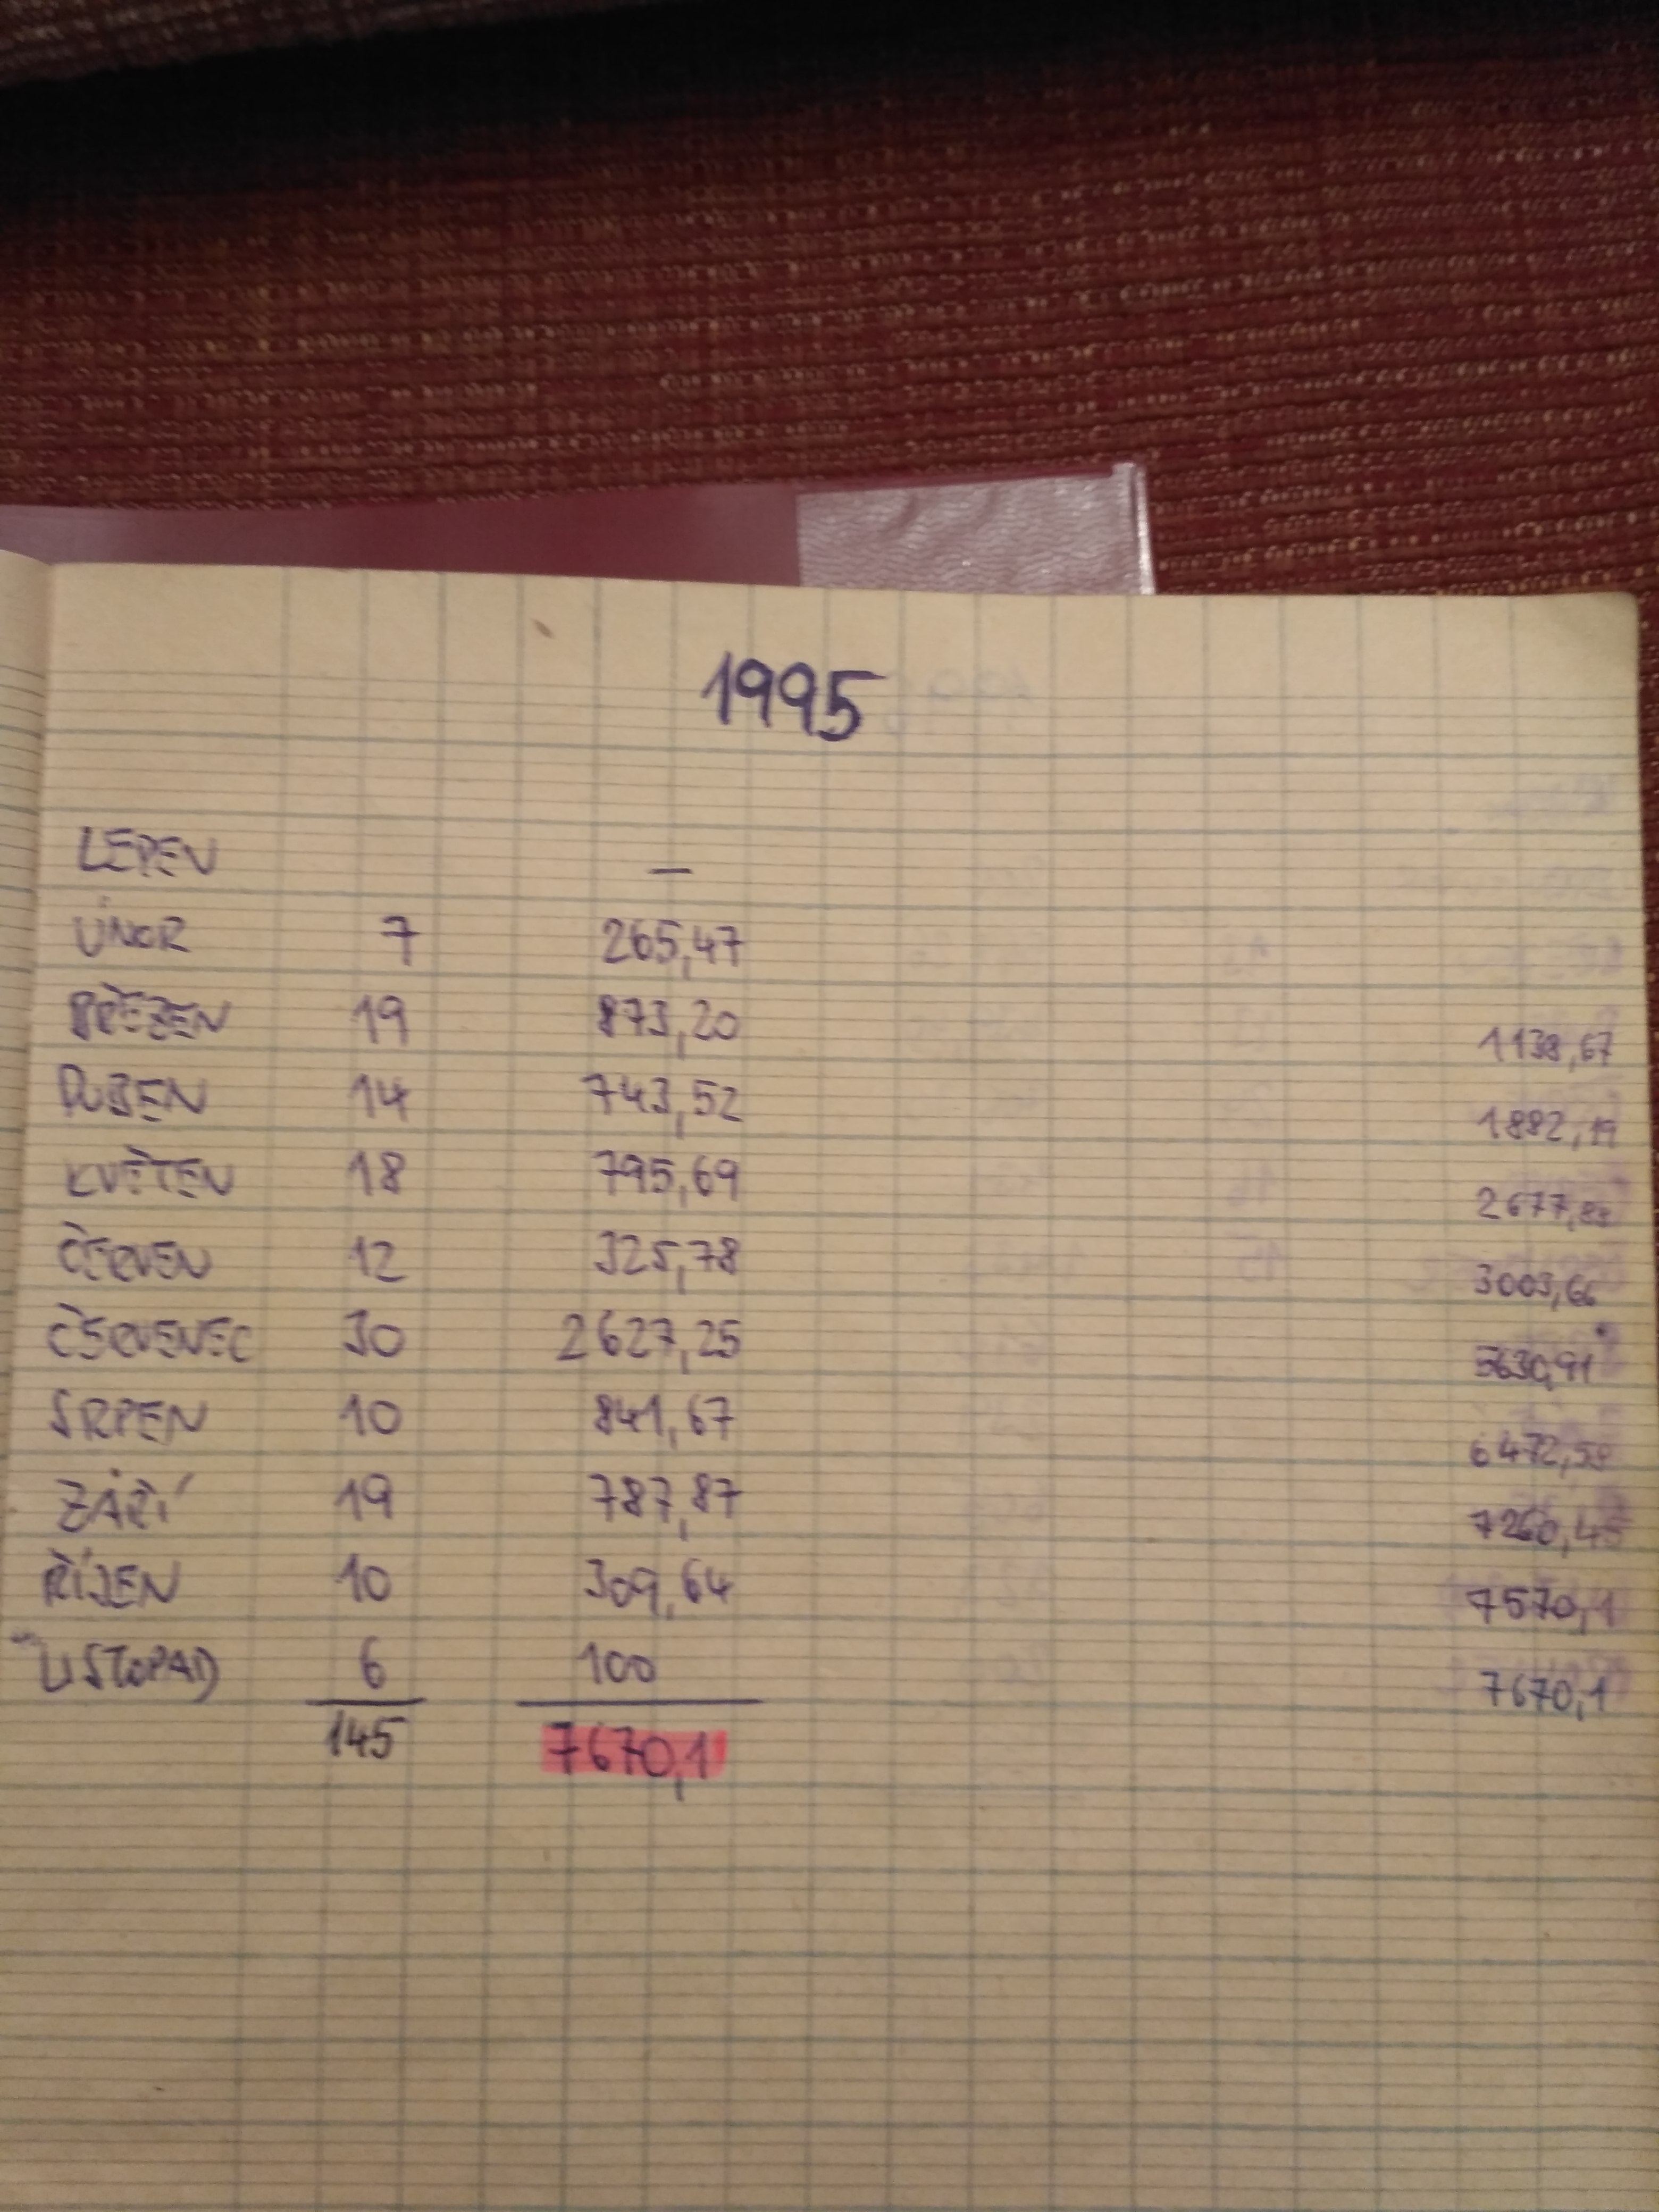 1995
LEDEN —
ÚNOR 7 265,47
BŘEZEN 19 873,20 1138,67
DUBEN 14 743,52 1882,19
KVĚTEN 18 795,69 2677,88
ČERVEN 12 325,78 3003,66
ČERVENEC 30 2627,25 5630,91
SRPEN 10 841,67 6472,58
ZÁŘÍ 19 787,87 7260,45
ŘÍJEN 10 309,64 7570,1
LISTOPAD 6 100 7670,1
145 7670,1